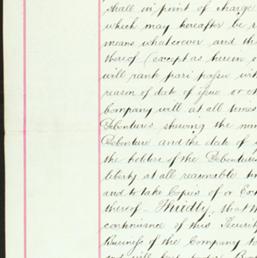 shall in point of charge
which may hereafter be
means whatsoever and the
thereof (except as herein
will rank pari passu
reason of date of issue or
Company will at all times
Debentures shewing the
Debenture and the date of
the holders of the Debentures
liberty at all reasonable
and to take Copies of or
thereof - Thirdly, that
continuance of this Security
Business of the Company to
and will